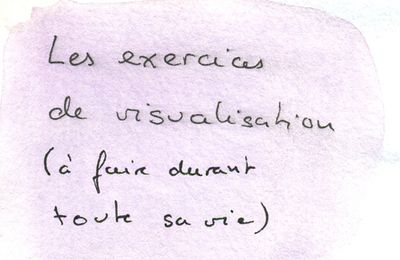 Les exercices
de visualisation
(à faire durant
toute sa vie)